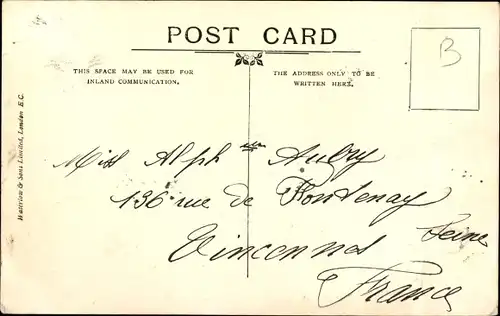 POST CARD
B
THIS SPACE MAY BE USED FOR
INLAND COMMUNICATION.
THE ADDRESS ONLY TO BE
WRITTEN HERE.
Waterlow & Sons Limited, London E.C.
Miss Alph Aubry
136 rue de Fontenay
Vincennes Seine
France